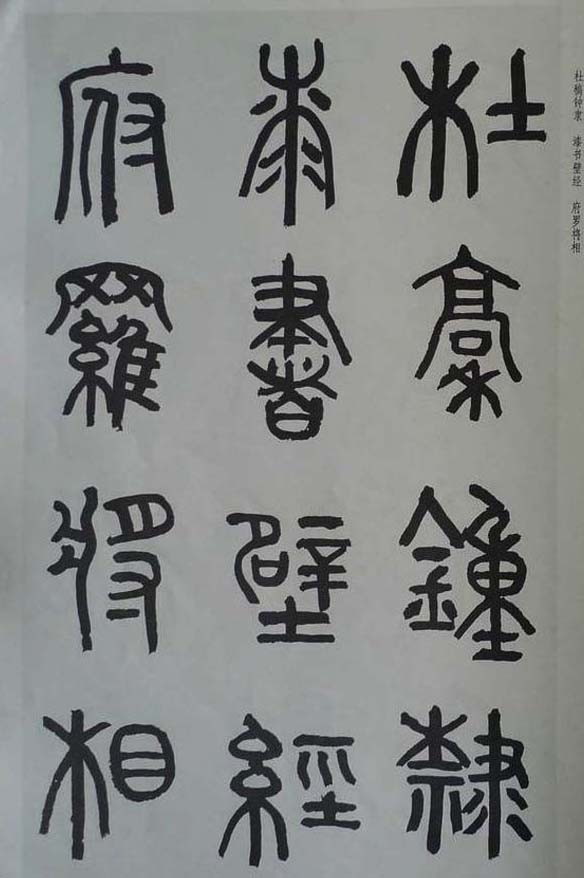 杜稿钟隶 漆书壁经 府罗将相
杜稾鍾隸
桼書壁經
府羅將相